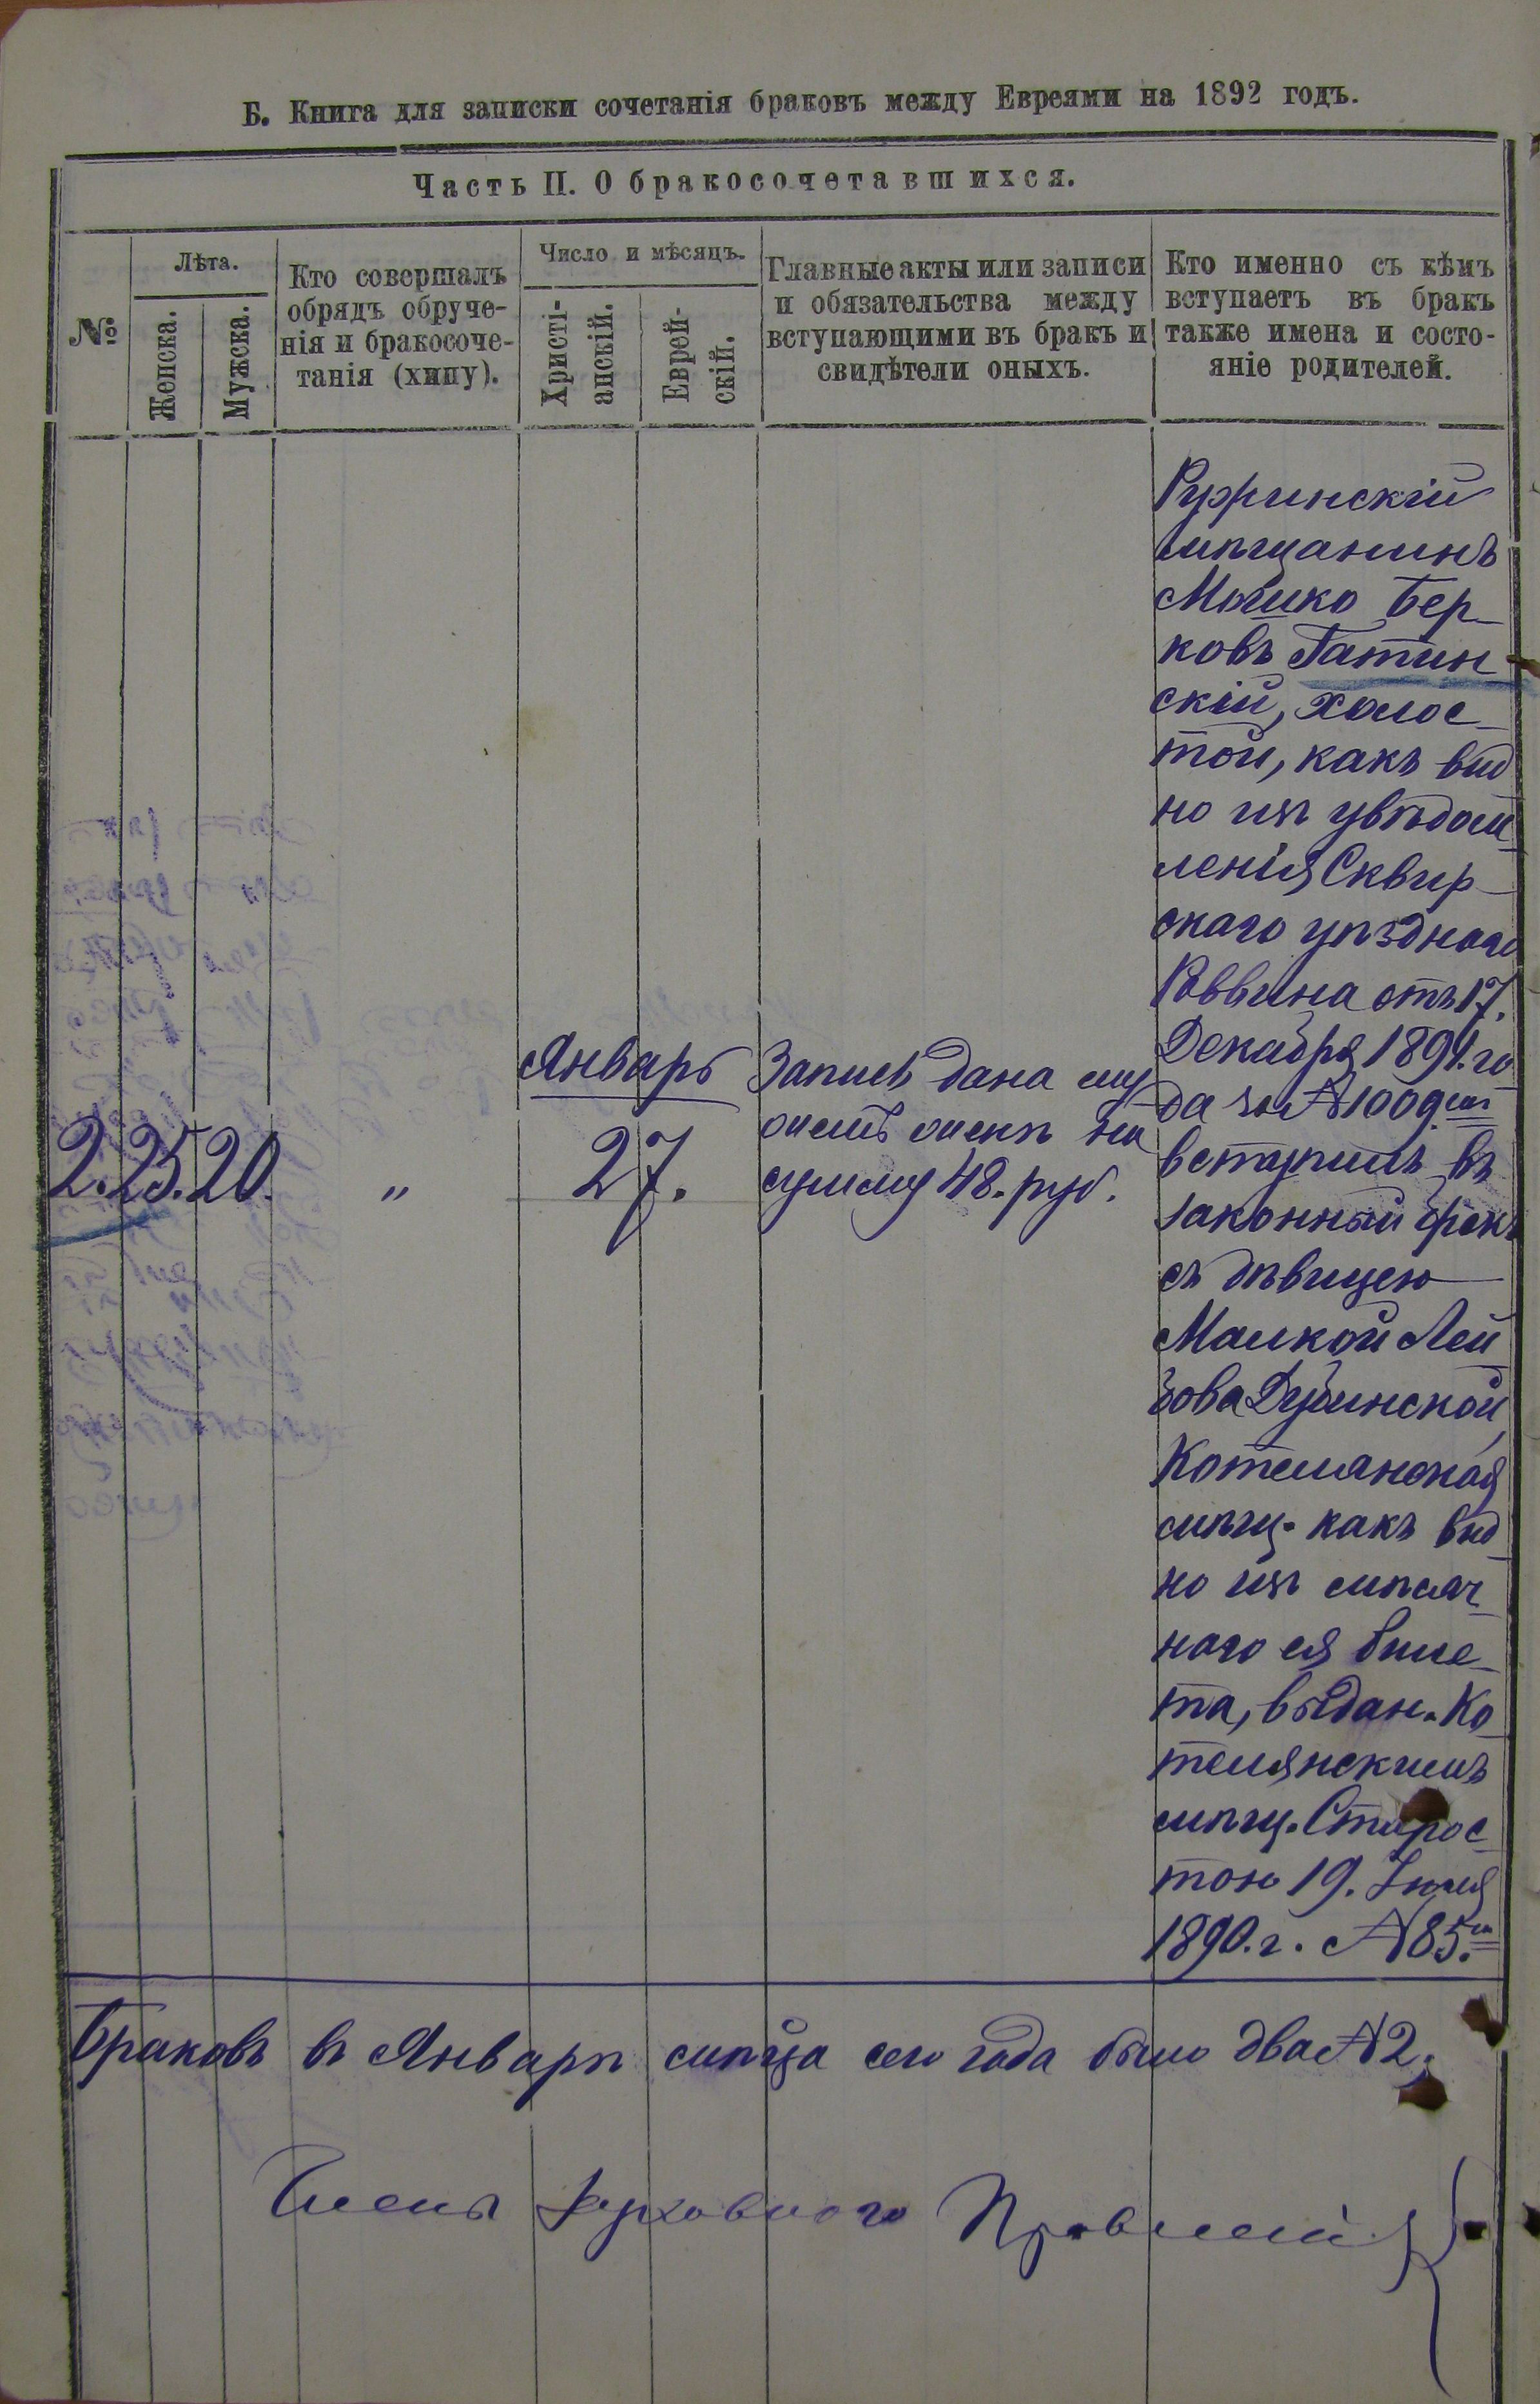 Б. Книга для записки сочетанія браковъ между Евреями на 1892 годъ.
Часть II. О бракосочетавшихся.
№
Лѣта.
Женска.
Мужска.
Кто совершалъ
обрядъ обруче-
нія и бракосоче-
танія (хипу).
Число и мѣсяцъ.
Христі-
анскій.
Еврей-
скій.
Главные акты или записи
и обязательства между
вступающими въ бракъ и
свидѣтели оныхъ.
Кто именно съ кѣмъ
вступаетъ въ бракъ
также имена и состо-
яніе родителей.
2. 25. 20. „
Январь
27.
Запись дана му
жемъ женѣ на
сумму 48. руб.
Ружинскій
мѣщанинъ
Мошко Бер-
ковъ Гатин
скій, холос-
той, какъ вид
но изъ увѣдом-
ленія Сквир-
скаго уѣзднаго
Раввина отъ 17.
Декабря 1891. го
да за № 1009.
вступилъ въ
законный бракъ
съ дѣвицею
Малкой Лей
бова Дубинской,
Котелянская
мѣщ. какъ вид
но изъ мѣсяч
наго ея биле-
та, выдан. Ко
телянскимъ
мѣщ. Старос
тою 19. Іюля
1890. г. № 85.
Браковъ въ Январѣ мѣ-ца сего года было два № 2.
Члены Духовного Правленія